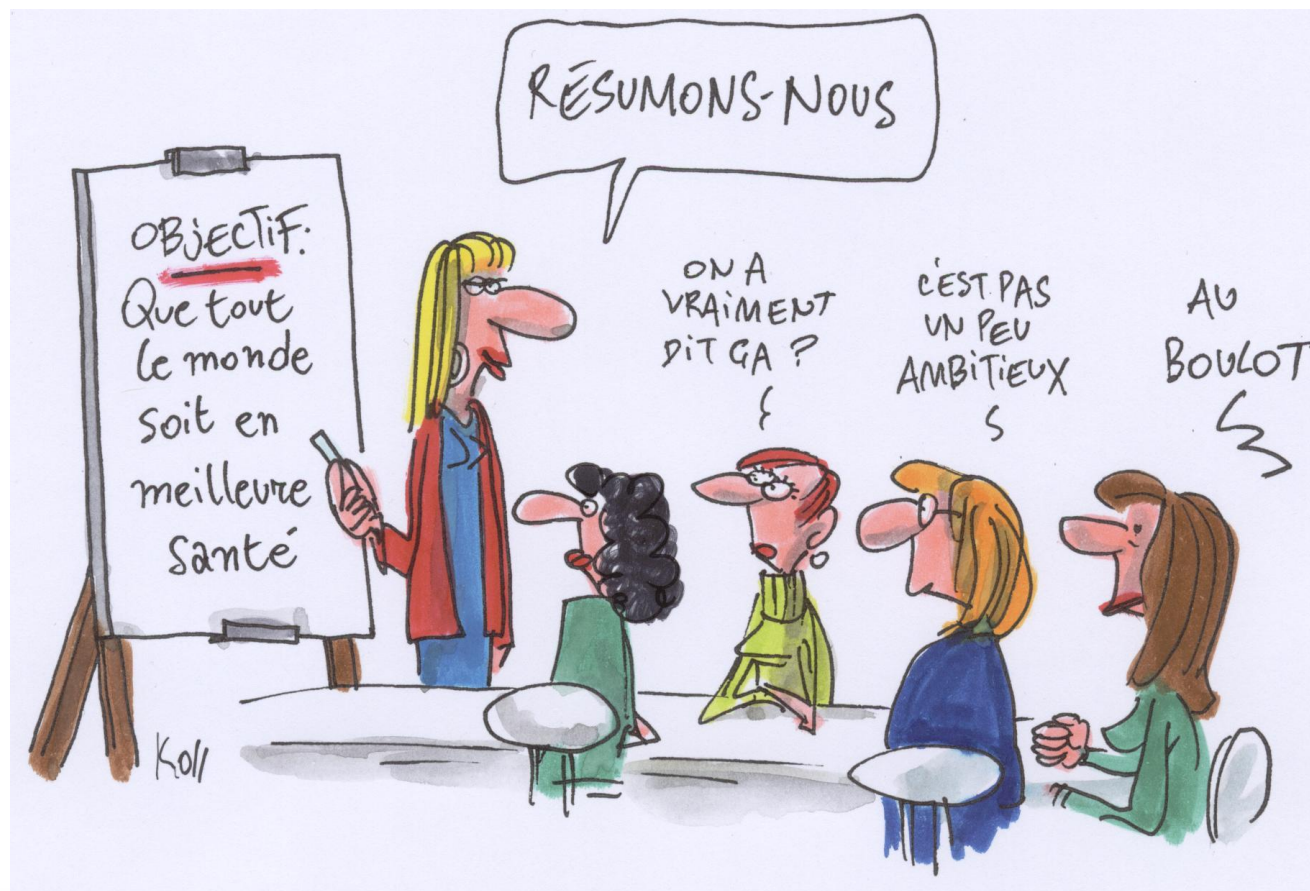 RÉSUMONS-NOUS
OBJECTIF:
Que tout
le monde
soit en
meilleure
santé
ON A
VRAIMENT
DIT ÇA ?
C'EST PAS
UN PEU
AMBITIEUX
AU
BOULOT
Koll